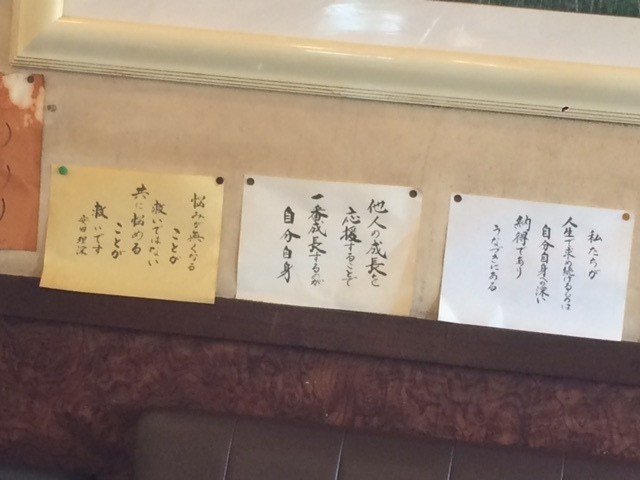 私たちが
人生で求め続けるものは
自分自身の深い
納得であり
うなづきにある
他人の成長を
応援することで
一番成長するのが
自分自身
悩みが無くなる
ことが
救いではない
共に悩める
ことが
救いです